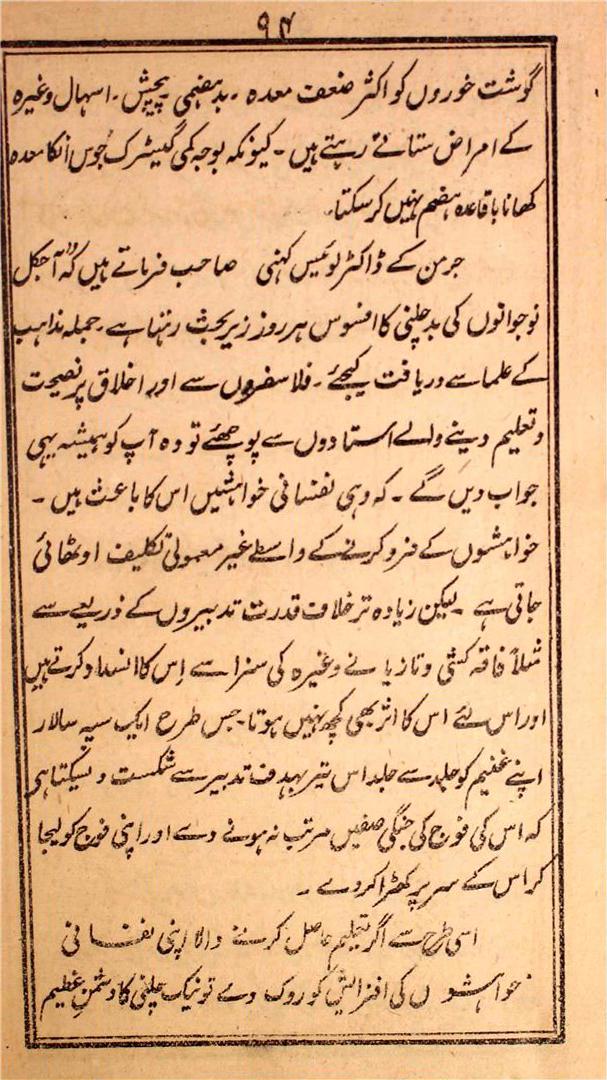 ۹۴
گوشت خوروں کو اکثر ضعف معدہ ۔ بدہضمی پیچش ۔ اسہال وغیرہ
کے امراض ستاتے رہتے ہیں ۔ کیونکہ بوجہ کمی گیسٹرک جُوس انکا معدہ
کھانا باقاعدہ ہضم نہیں کرسکتا۔
جرمن کے ڈاکٹر لوئیس کہنی صاحب فرماتے ہیں کہ "آجکل
نوجوانوں کی بدچلنی کا افسوس ہر روز زیربحث رہتا ہے ۔ جملہ مذاہب
کے علما سے دریافت کیجئے ۔ فلاسفروں سے اور اخلاق پر نصیحت
و تعلیم دینے والے استادوں سے پوچھئے تو وہ آپ کو ہمیشہ یہی
جواب دیں گے ۔ کہ وہی نفسانی خواہشیں اس کا باعث ہیں ۔
خواہشوں کے فرو کرنے کے واسطے غیر معمولی تکلیف اوٹھائی
جاتی ہے ۔ لیکن زیادہ تر خلاف قدرت تدبیروں کے ذریعے سے
مثلاً فاقہ کشی و تازیانے وغیرہ کی سزا سے اِس کا انسداد کرتے ہیں
اور اس لئے اس کا اثر بھی کچھ نہیں ہوتا ۔ جس طرح ایک سپہ سالار
اپنے غنیم کو جلد سے جلد اس تیر بہدف تدبیر سے شکست دیسکتا ہی
کہ اس کی فوج کی جنگی صفیں مرتب نہ ہونے دے اور اپنی فوج کو لیجا
کر اس کے سر پر کھڑا کردے ۔
اسی طرح سے اگر تعلیم حاصل کرنے والا اپنی نفسانی
خواہشوں کی افزایش کو روک دے تو نیک چلنی کا دشمنِ عظیم